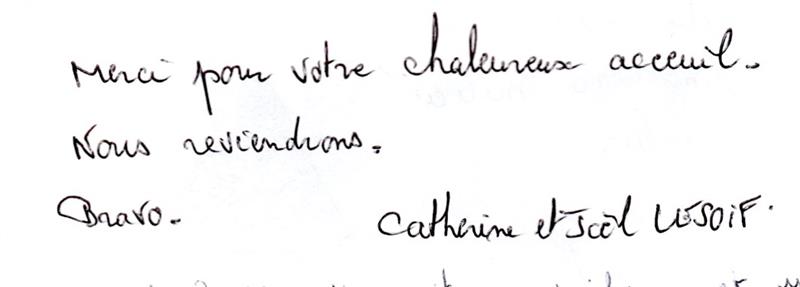 Merci pour votre chaleureux acceuil.
Nous reviendrons.
Bravo.
Catherine et Joël LESOIF.